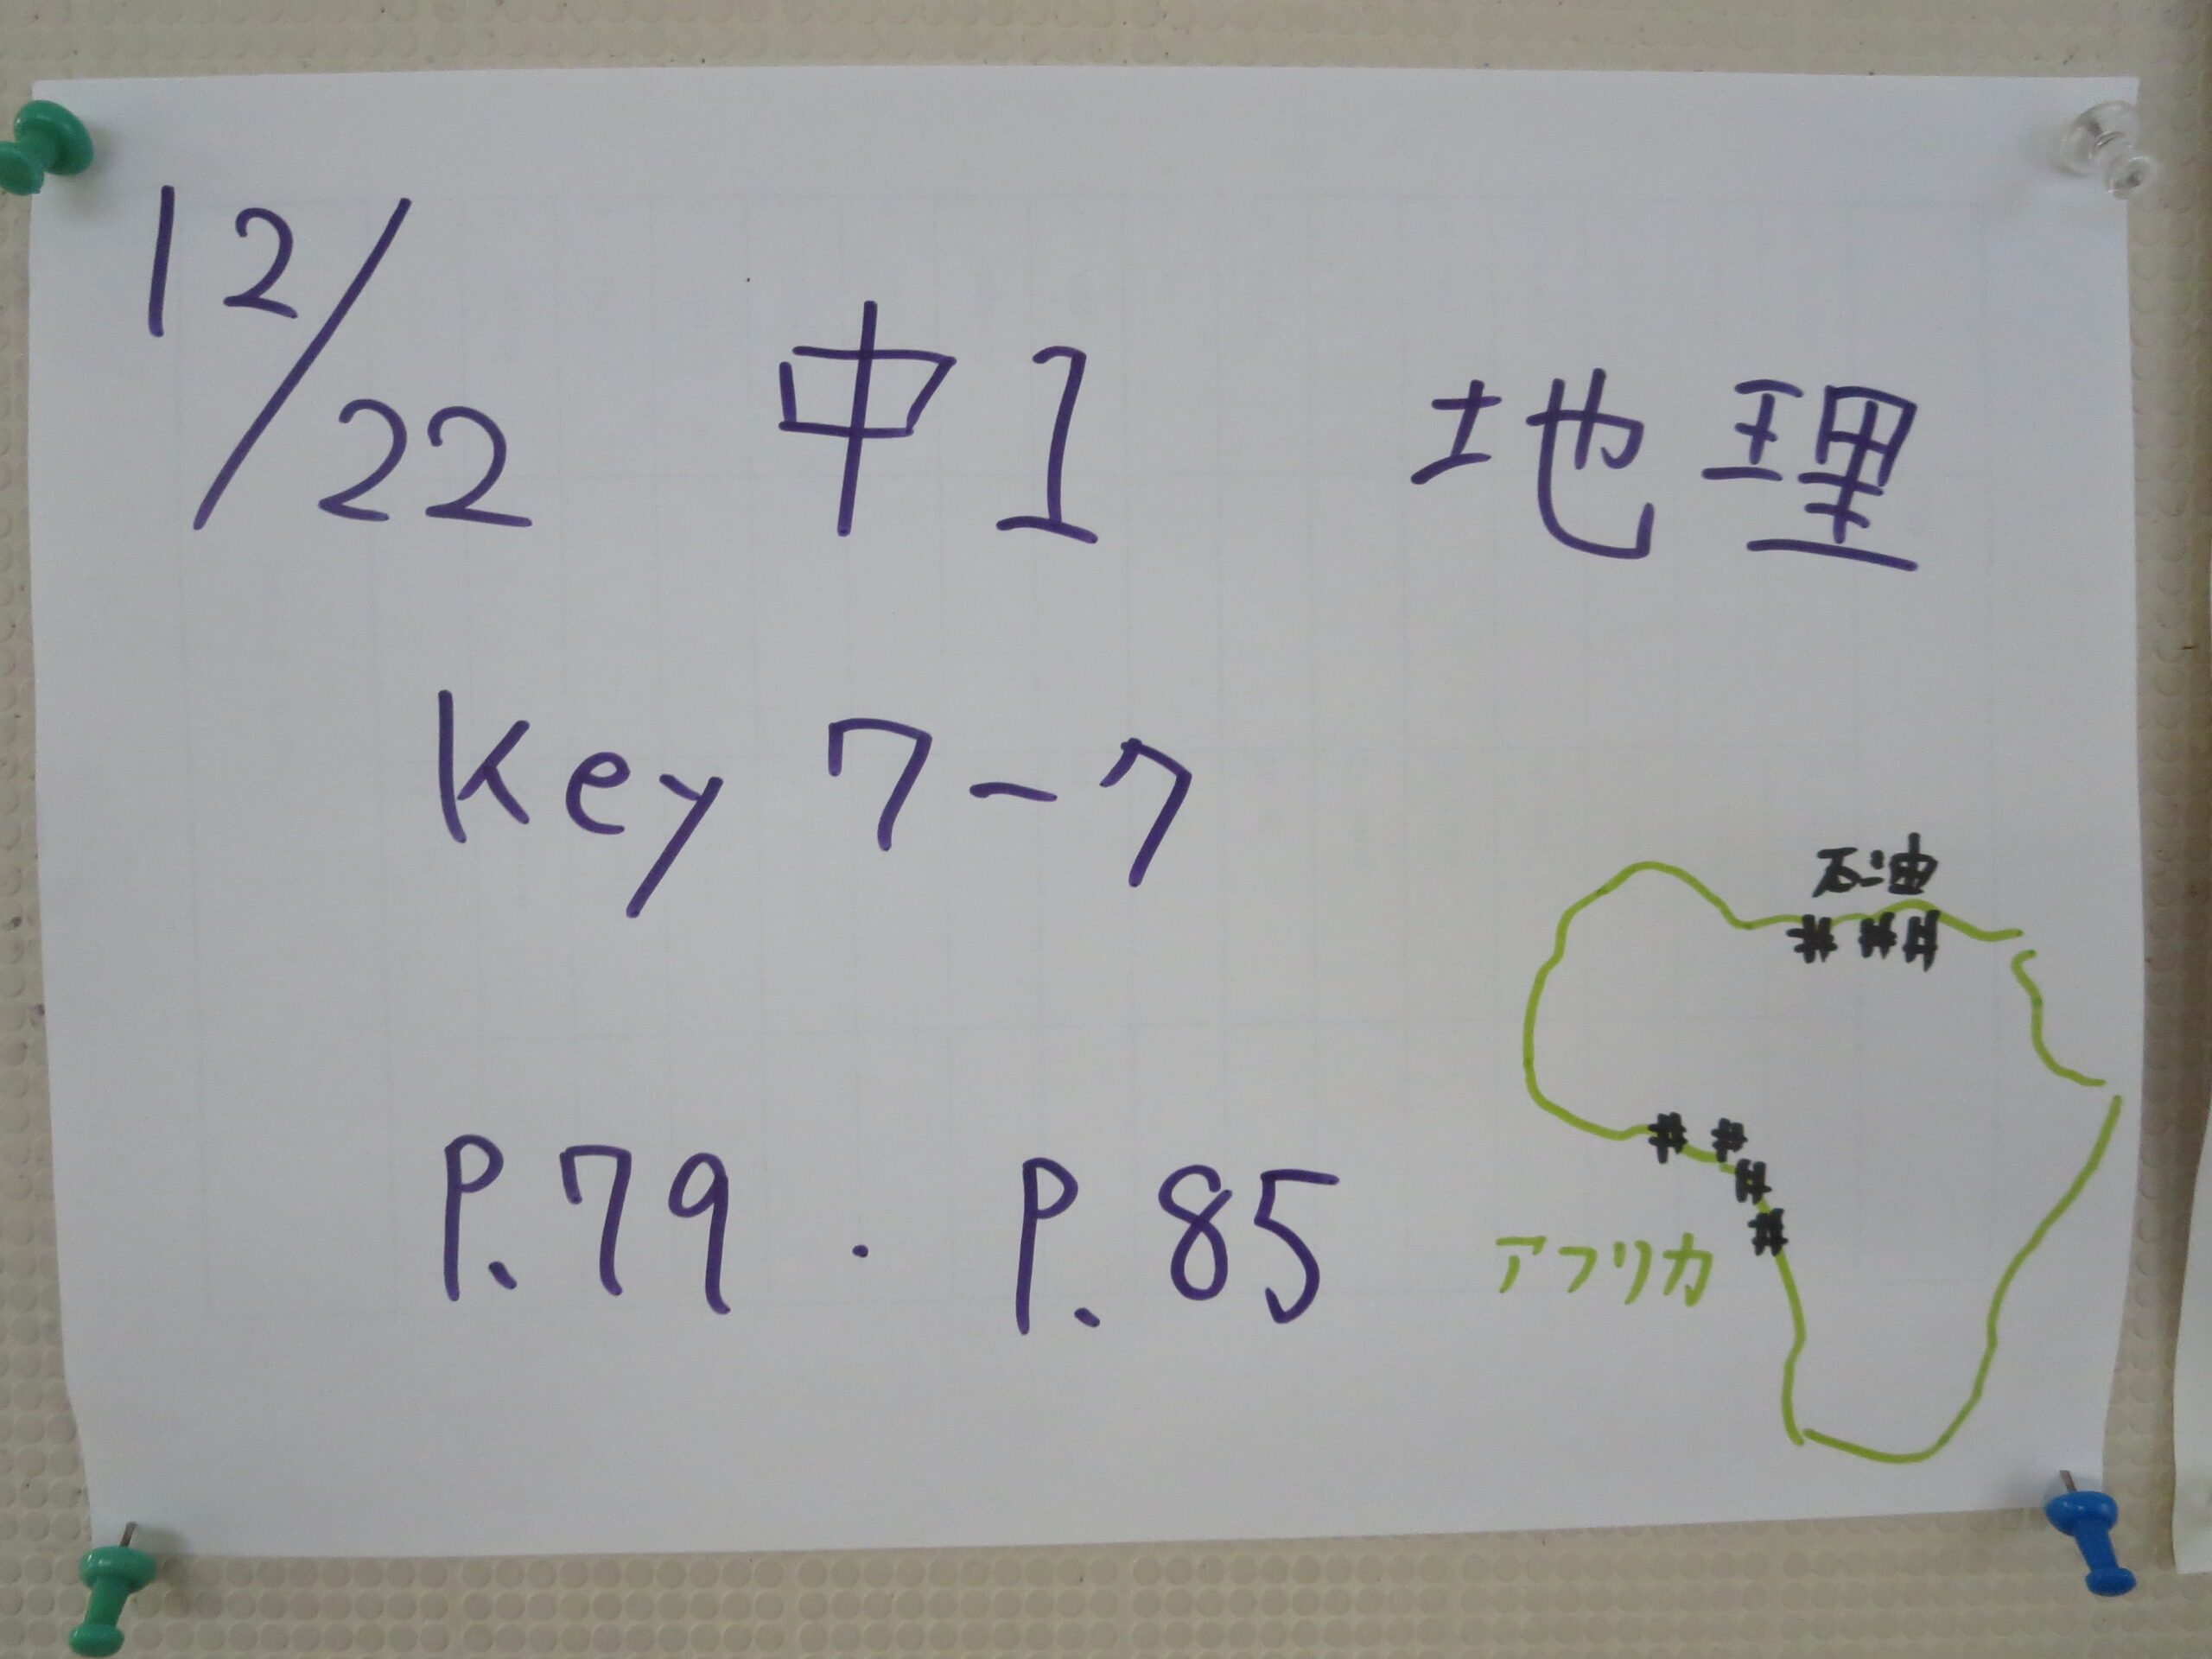 12/22 中1 地理
Key ワーク
P.79 ・ P.85
石油
アフリカ